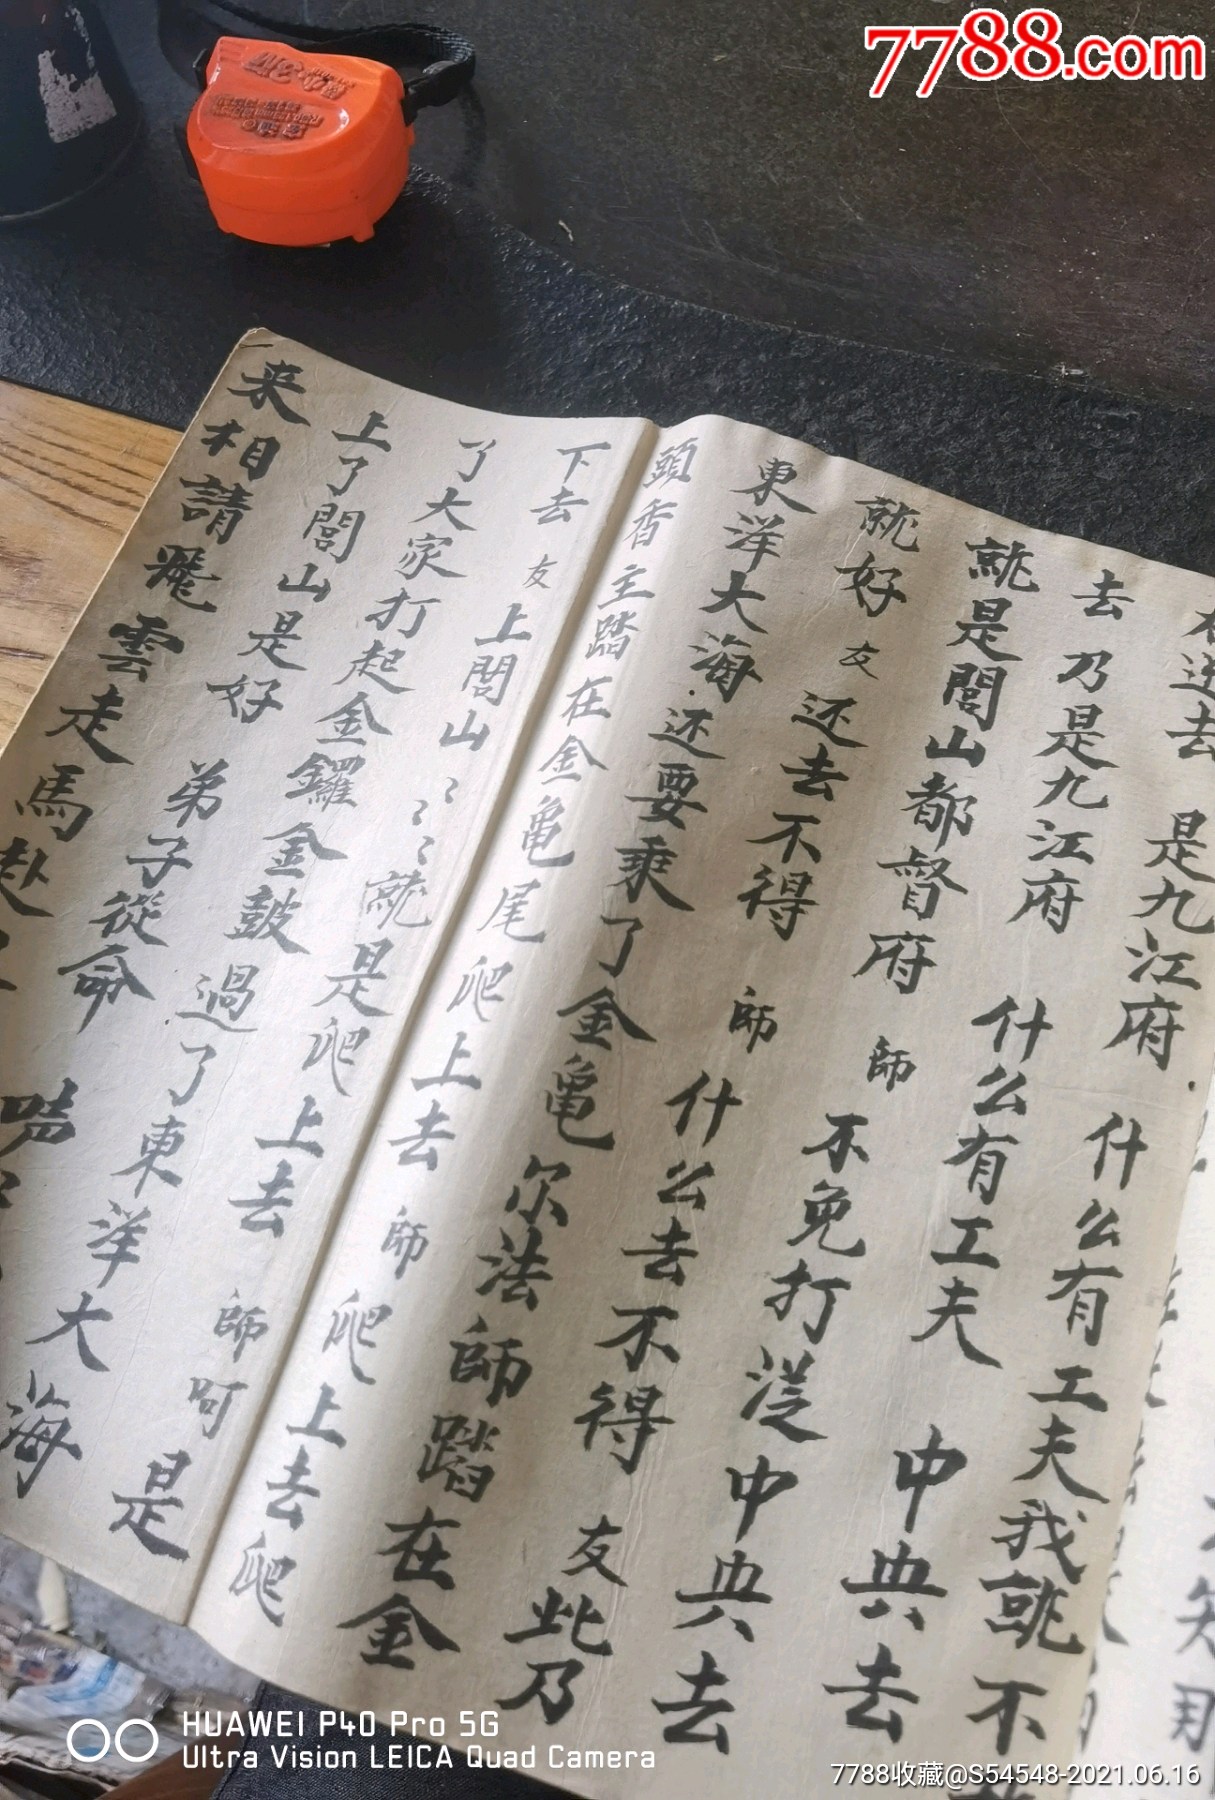 7788.com
去 是九江府 什么有工夫我就不
去 乃是九江府 什么有工夫 中央去
就是閭山都督府 師 不免打從中央去
就好 友 还去不得 師 什么去不得 友 此乃
東洋大海还要乘了金亀尔法師踏在金
頭香主踏在金亀尾爬上去 師 爬上去爬
下去 友 上閭山〻〻〻就是爬上去 師 呵是
了大家打起金鑼金鼓過了東洋大海
上了閭山是好 弟子從命
来相請飛雲走馬赴
HUAWEI P40 Pro 5G
Ultra Vision LEICA Quad Camera
7788收藏@S54548-2021.06.16